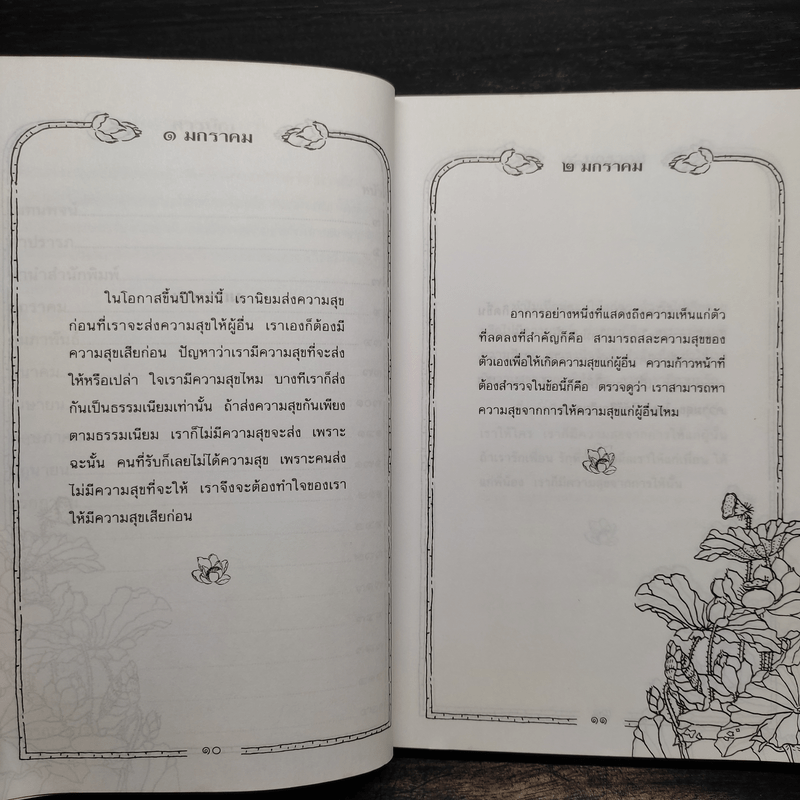 ๑ มกราคม
ในโอกาสขึ้นปีใหม่นี้ เรานิยมส่งความสุข
ก่อนที่เราจะส่งความสุขให้ผู้อื่น เราเองก็ต้องมี
ความสุขเสียก่อน ปัญหาว่าเรามีความสุขที่จะส่ง
ให้หรือเปล่า ใจเรามีความสุขไหม บางทีเราก็ส่ง
กันเป็นธรรมเนียมเท่านั้น ถ้าส่งความสุขกันเพียง
ตามธรรมเนียม เราก็ไม่มีความสุขจะส่ง เพราะ
ฉะนั้น คนที่รับก็เลยไม่ได้ความสุข เพราะคนส่ง
ไม่มีความสุขที่จะให้ เราจึงจะต้องทำใจของเรา
ให้มีความสุขเสียก่อน
๑๐
๒ มกราคม
อาการอย่างหนึ่งที่แสดงถึงความเห็นแก่ตัว
ที่ลดลงที่สำคัญก็คือ สามารถสละความสุขของ
ตัวเองเพื่อให้เกิดความสุขแก่ผู้อื่น ความก้าวหน้าที่
ต้องสำรวจในข้อนี้ก็คือ ตรวจดูว่า เราสามารถหา
ความสุขจากการให้ความสุขแก่ผู้อื่นไหม
๑๑